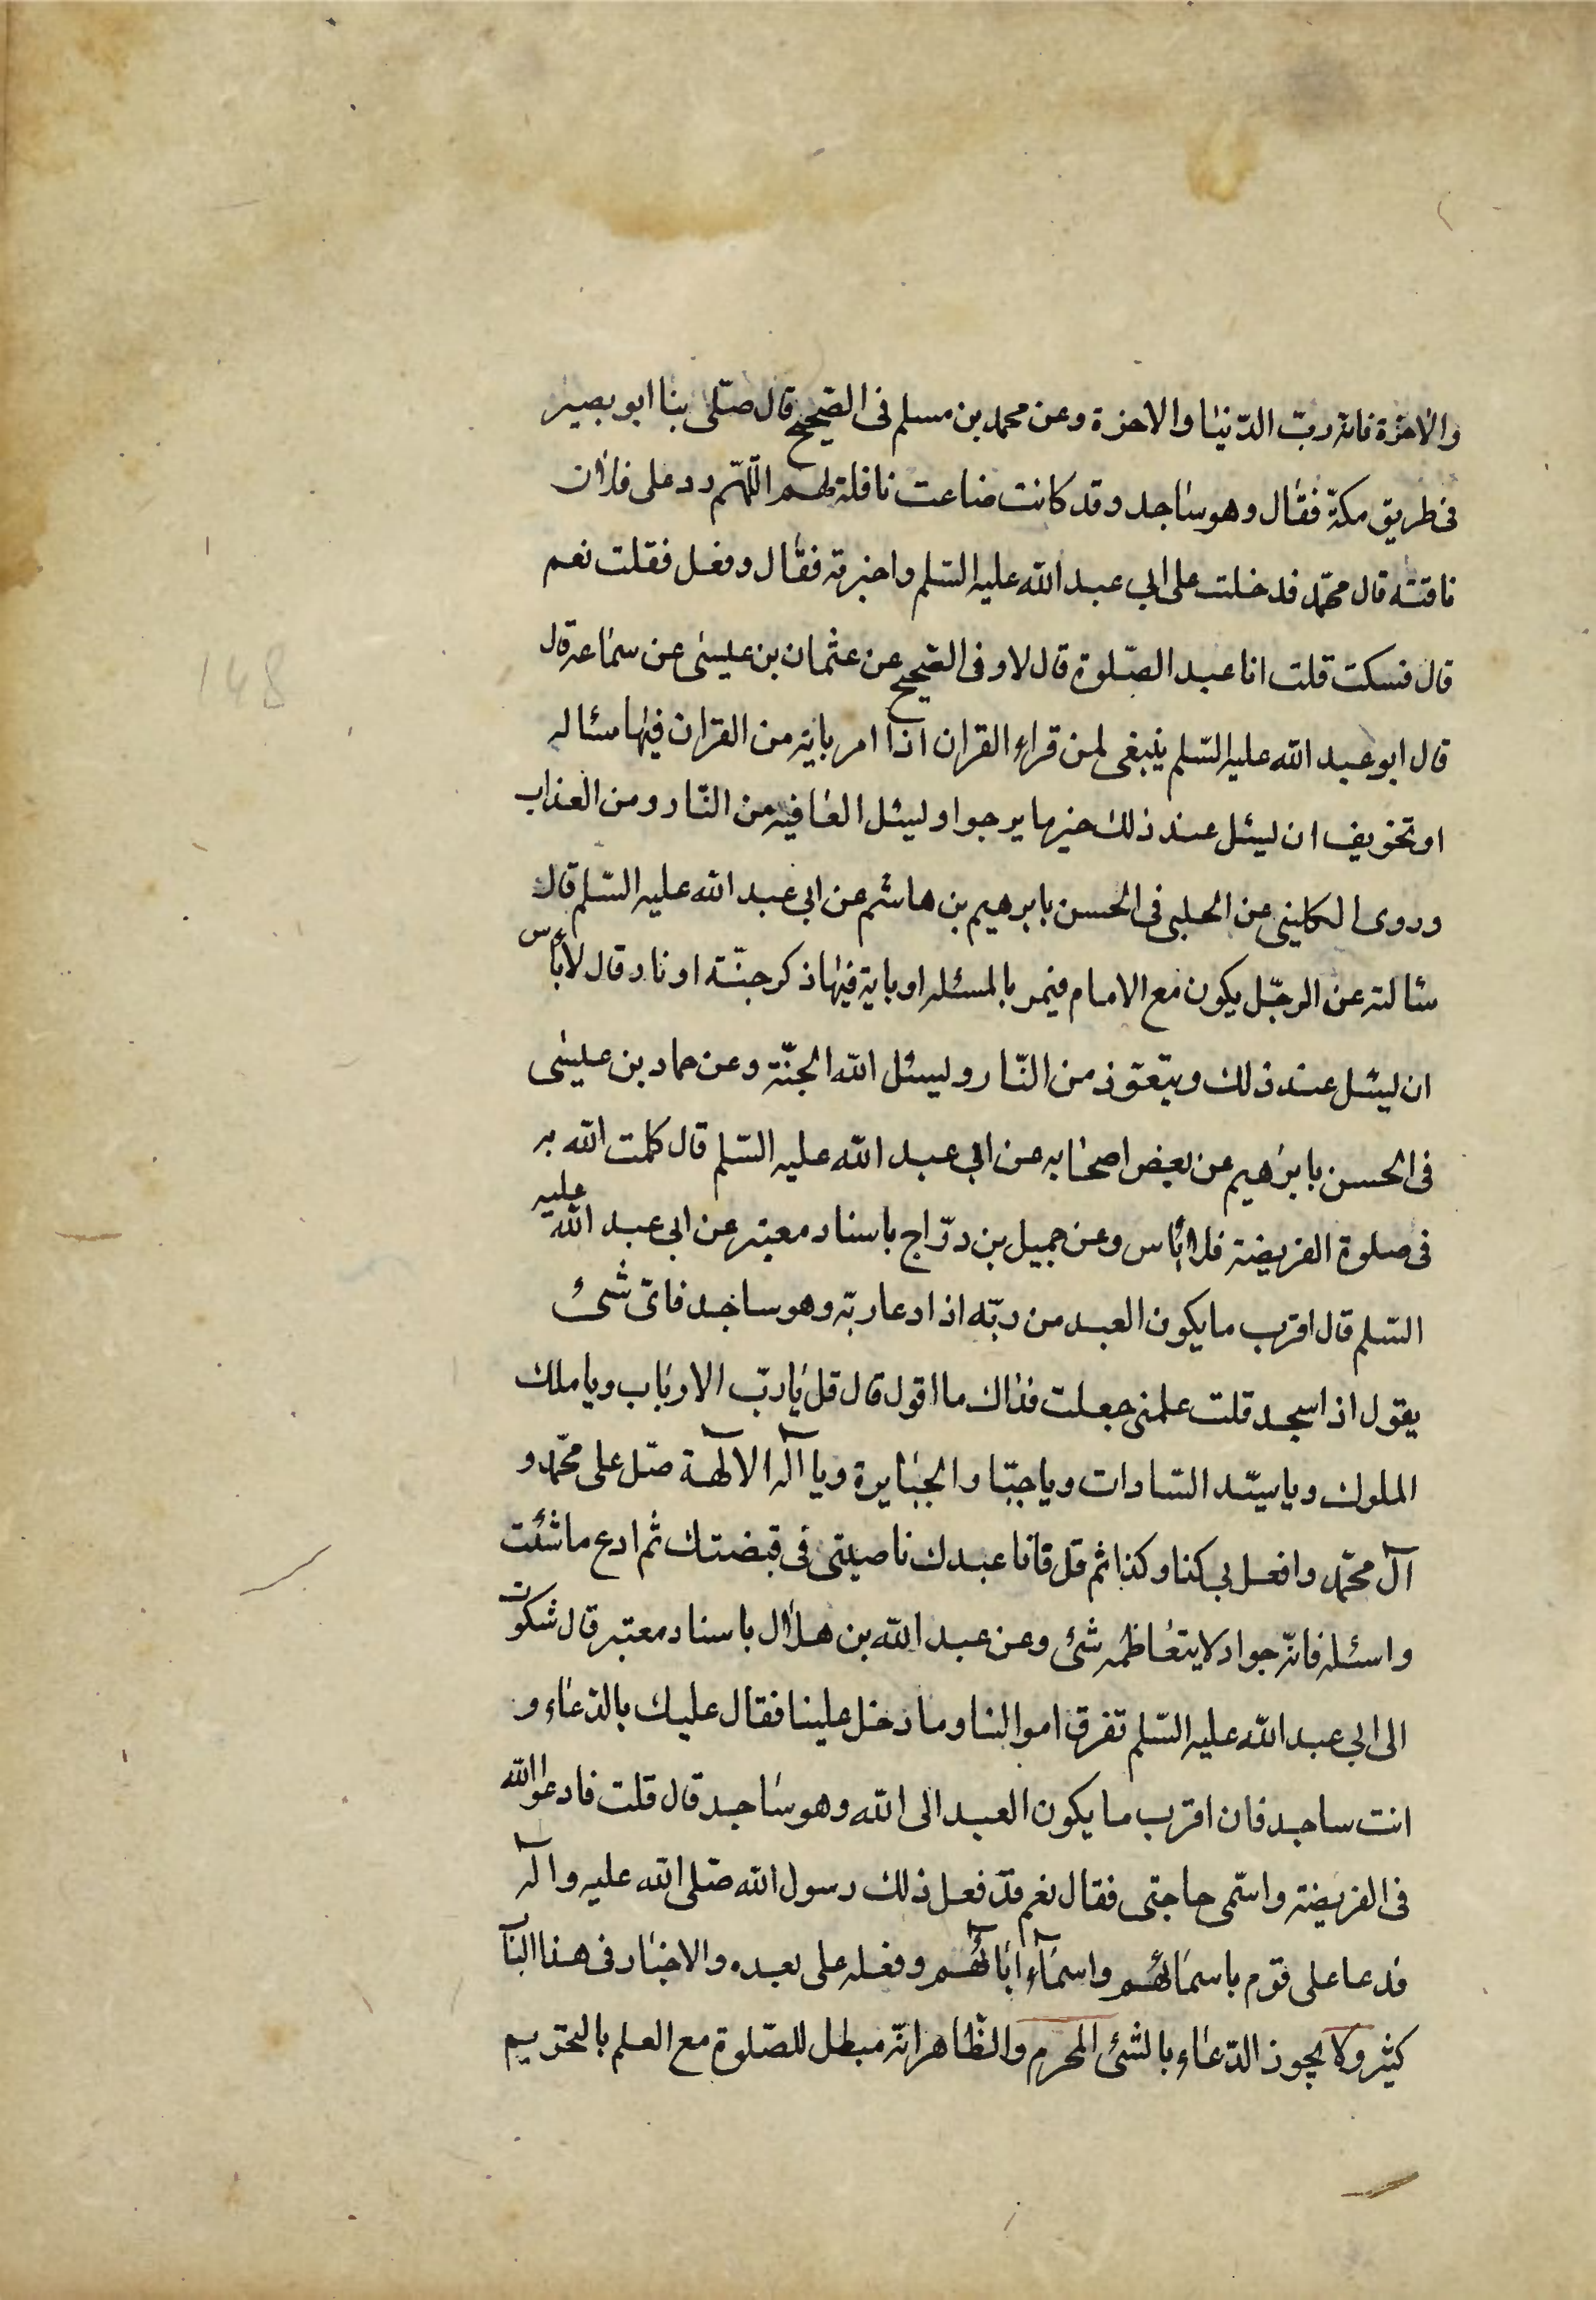 والاخرة فانه ربّ الدّنيا والاخرة وعن محمد بن مسلم فى الصّحيح قال صلّى بنا ابو بصير
فى طريق مكّة فقال وهو ساجد وقد كانت ضاعت ناقلة لهم اللّهم رد على فلان
ناقته قال محمّد فدخلت على ابى عبد الله عليه السّلم واخبرته فقال وفعل فقلت نعم
قال فسكت قلت افاعيد الصّلوة قال لا وفى الصّحيح عن عثمان بن عيسى عن سماعه قال
قال ابو عبد الله عليه السّلم ينبغى لمن قراء القران اذا امر باية من القران فيها مسئاله
او تخويف ان ليسئل عند ذلك خير ما يرجوا وليسئل العافيه من النّار ومن العذاب
وروى الكلينى عن الحلبى فى الحسن بابرهيم بن هاشم عن ابى عبد الله عليه السّلم قال
سئالته عن الرجّل يكون مع الامام فيمر بالمسئله او باية فيها ذكر جنّة او نار قال لا بأس
ان ليسئل عند ذلك ويتعوّذ من النّار وليسئل الله الجنّة وعن حماد بن عيسى
فى الحسن بابرهيم عن بعض اصحابه عن ابى عبد الله عليه السّلم قال كلمت الله به
فى صلوة الفريضة فلا بأس وعن جميل بن درّاج باسناد معتبر عن ابى عبد الله عليه
السّلم قال اقرب ما يكون العبد من ربّه اذا دعا ربّه وهو ساجد فاىّ شىئ
يقول اذا سجد قلت علمنى جعلت فداك ما اقول قال قل يا ربّ الارباب ويا ملك
الملوك ويا سيّد السّادات ويا جبّار الجبابرة ويا اله الالهة صّل على محمّد و
آل محمّد وافعل بى كذا وكذا ثم قل فانا عبدك ناصيتى فى قبضتك ثم ادع ما شئت
واسئله فانّه جواد لا يتعاظمه شئ وعن عبد الله بن هلال باسناد معتبر قال شكوت
الى ابى عبد الله عليه السّلم تفرق اموالنا وما دخل علينا فقال عليك بالدّعاء و
انت ساجد فان اقرب ما يكون العبد الى الله وهو ساجد قال قلت فادعوا الله
فى الفريضة واسّمى حاجتى فقال نعم قد فعل ذلك رسول الله صّلى الله عليه واله
فدعا على قوم باسمائهم واسماء ابائهم وفعله على بعده والاخبار فى هذا البا
كثير ولا يجوز الدّعاء بالشئ المحرم والظّاهر انّه مبطل للصّلوة مع العلم بالتحريم
148